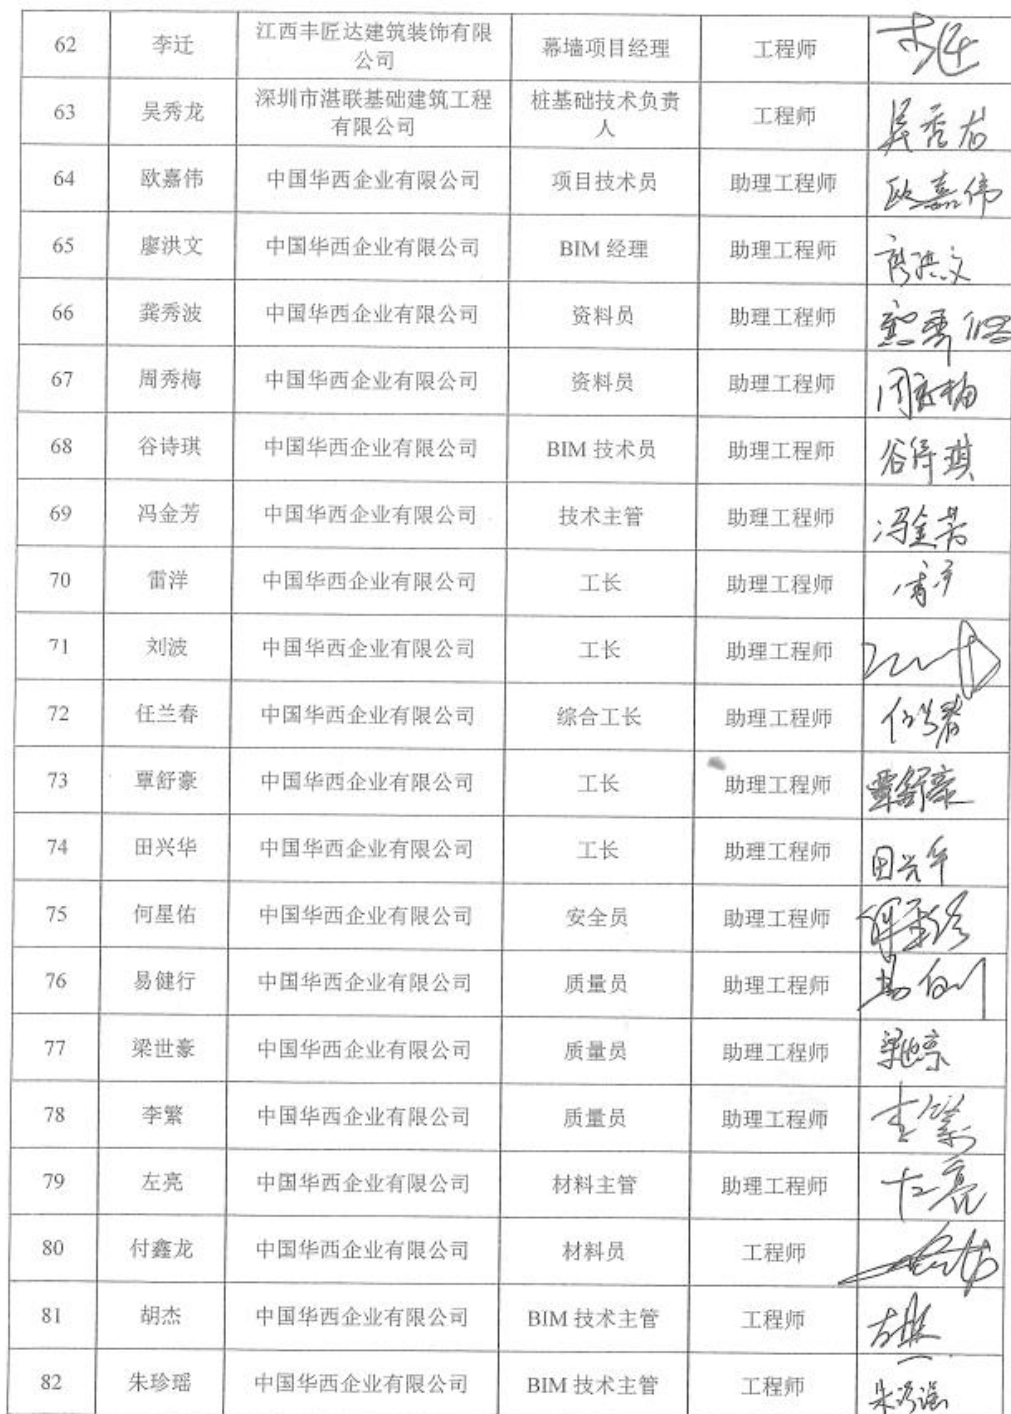 62 李迁 江西丰匠达建筑装饰有限 幕墙项目经理 工程师 李迁
公司
63 吴秀龙 深圳市湛联基础建筑工程 桩基础技术负责 工程师 吴秀龙
有限公司 人
64 欧嘉伟 中国华西企业有限公司 项目技术员 助理工程师 欧嘉伟
65 廖洪文 中国华西企业有限公司 BIM 经理 助理工程师 廖洪文
66 龚秀波 中国华西企业有限公司 资料员 助理工程师 龚秀波
67 周秀梅 中国华西企业有限公司 资料员 助理工程师 周秀梅
68 谷诗琪 中国华西企业有限公司 BIM 技术员 助理工程师 谷诗琪
69 冯金芳 中国华西企业有限公司 技术主管 助理工程师 冯金芳
70 雷洋 中国华西企业有限公司 工长 助理工程师 雷洋
71 刘波 中国华西企业有限公司 工长 助理工程师
72 任兰春 中国华西企业有限公司 综合工长 助理工程师 任兰春
73 覃舒豪 中国华西企业有限公司 工长 助理工程师 覃舒豪
74 田兴华 中国华西企业有限公司 工长 助理工程师 田兴华
75 何星佑 中国华西企业有限公司 安全员 助理工程师
76 易健行 中国华西企业有限公司 质量员 助理工程师
77 梁世豪 中国华西企业有限公司 质量员 助理工程师 梁世豪
78 李繁 中国华西企业有限公司 质量员 助理工程师 李繁
79 左亮 中国华西企业有限公司 材料主管 助理工程师 左亮
80 付鑫龙 中国华西企业有限公司 材料员 工程师
81 胡杰 中国华西企业有限公司 BIM 技术主管 工程师 胡杰
82 朱珍瑶 中国华西企业有限公司 BIM 技术主管 工程师 朱珍瑶